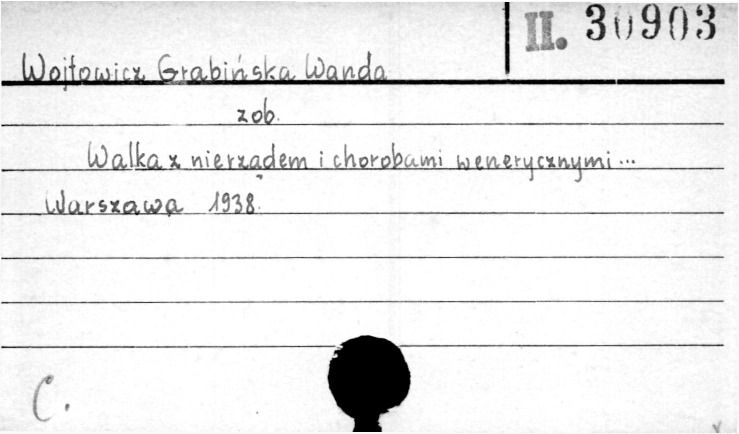 II. 30903
Wojtowicz Grabińska Wanda
zob.
Walka z nierządem i chorobami wenerycznymi...
Warszawa 1938.
C.